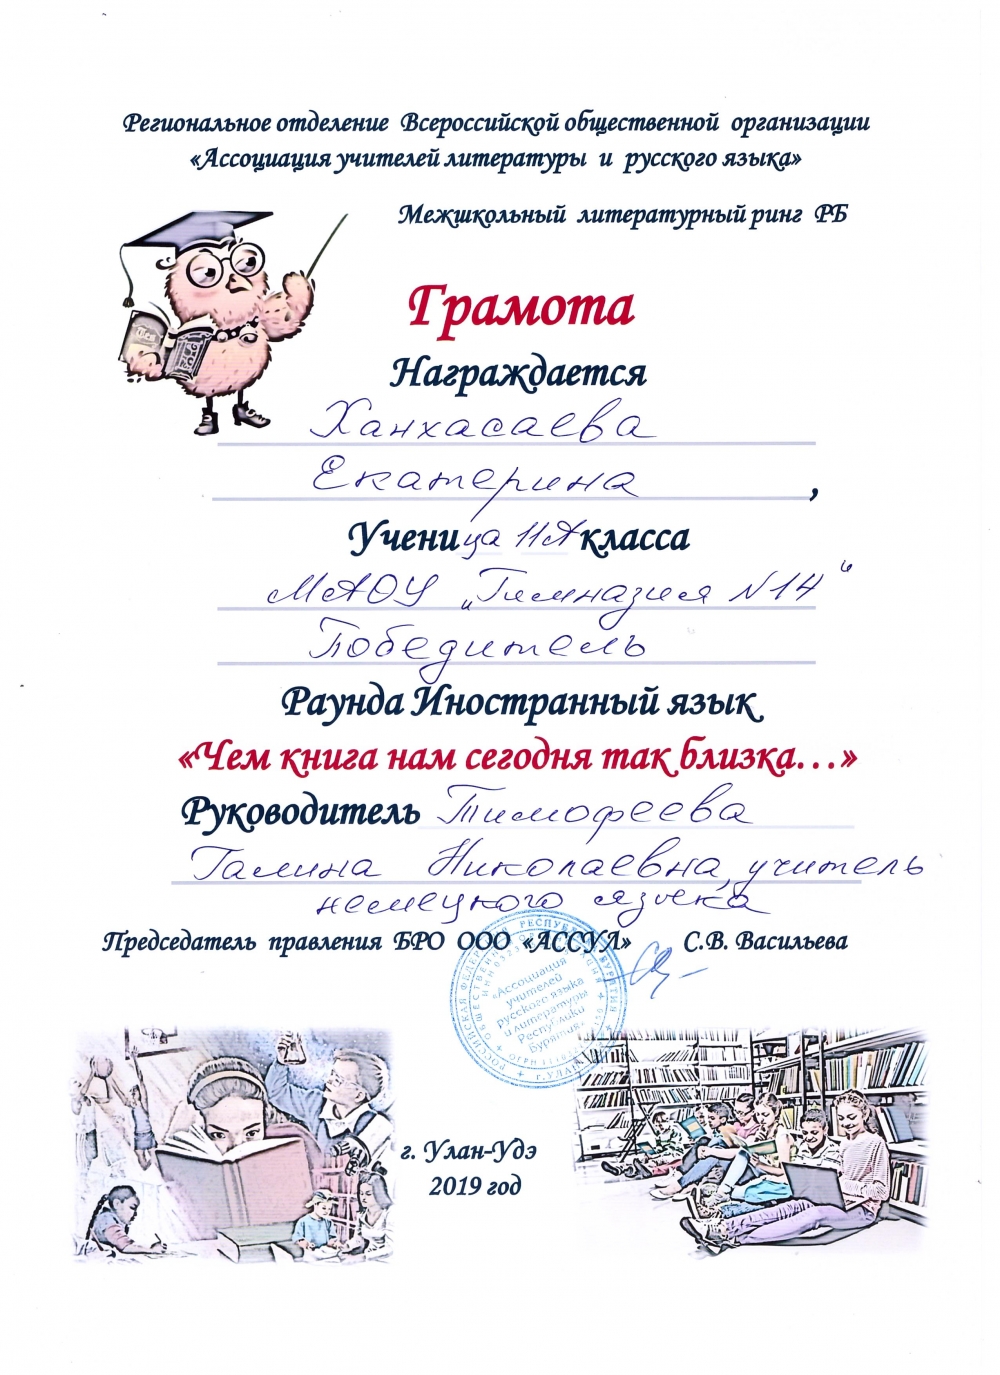 Региональное отделение Всероссийской общественной организации
«Ассоциация учителей литературы и русского языка»
Межшкольный литературный ринг РБ
Грамота
Награждается
Ханхасаева
Екатерина,
Ученица 11А класса
МАОУ „Гимназия №14“
Победитель
Раунда Иностранный язык
«Чем книга нам сегодня так близка…»
Руководитель Тимофеева
Галина Николаевна, учитель
немецкого языка
Председатель правления БРО ООО «АССУЛ» С.В. Васильева
«Ассоциация
учителей
русского языка
и литературы
Республики
Бурятия»
г. Улан-Удэ
2019 год